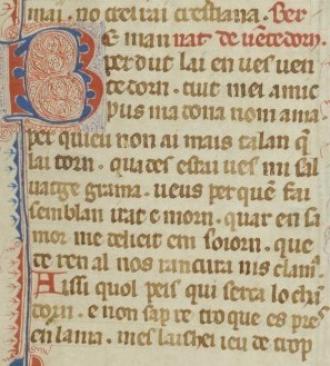 mai . no creirai crestiana . Ber
BE man nat de uētedorn .
perdut lai en ues uen
tedorn . tuit mei amic
pus ma dona nom ama .
per quieu non ai mais talan q̄
lai torn . quades estai ues mi sal
uatge grama . ueus per quē fai
semblan irat e morn . quar en sa
mor me deliet em soiorn . que
de ren al nos rancura nis clamā .
Aissi quol peis qui serca lo
dorn . e non sap re tro que es pres
en lama . mes laissei ieu de trop